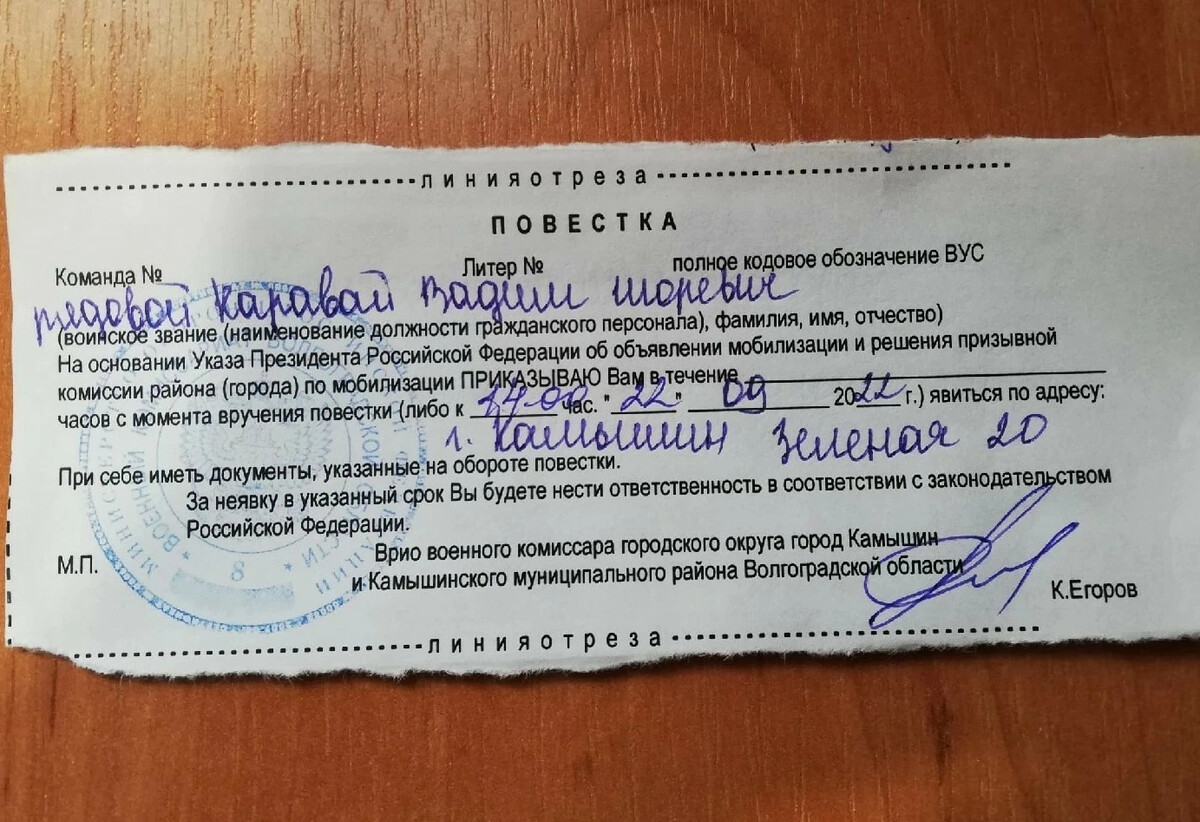 ЛИНИЯ ОТРЕЗА
ПОВЕСТКА
Команда № Литер № полное кодовое обозначение ВУС
рядовой Каравай Вадим
(воинское звание (наименование должности гражданского персонала), фамилия, имя, отчество)
На основании Указа Президента Российской Федерации об объявлении мобилизации и решения призывной
комиссии района (города) по мобилизации ПРИКАЗЫВАЮ Вам в течение
часов с момента вручения повестки (либо к 14-00 час. "22" 09 2022 г.) явиться по адресу:
г. Камышин Зеленая 20
При себе иметь документы, указанные на обороте повестки.
За неявку в указанный срок Вы будете нести ответственность в соответствии с законодательством
Российской Федерации.
М.П.
Врио военного комиссара городского округа город Камышин
и Камышинского муниципального района Волгоградской области
К.Егоров
8
ЛИНИЯ ОТРЕЗА